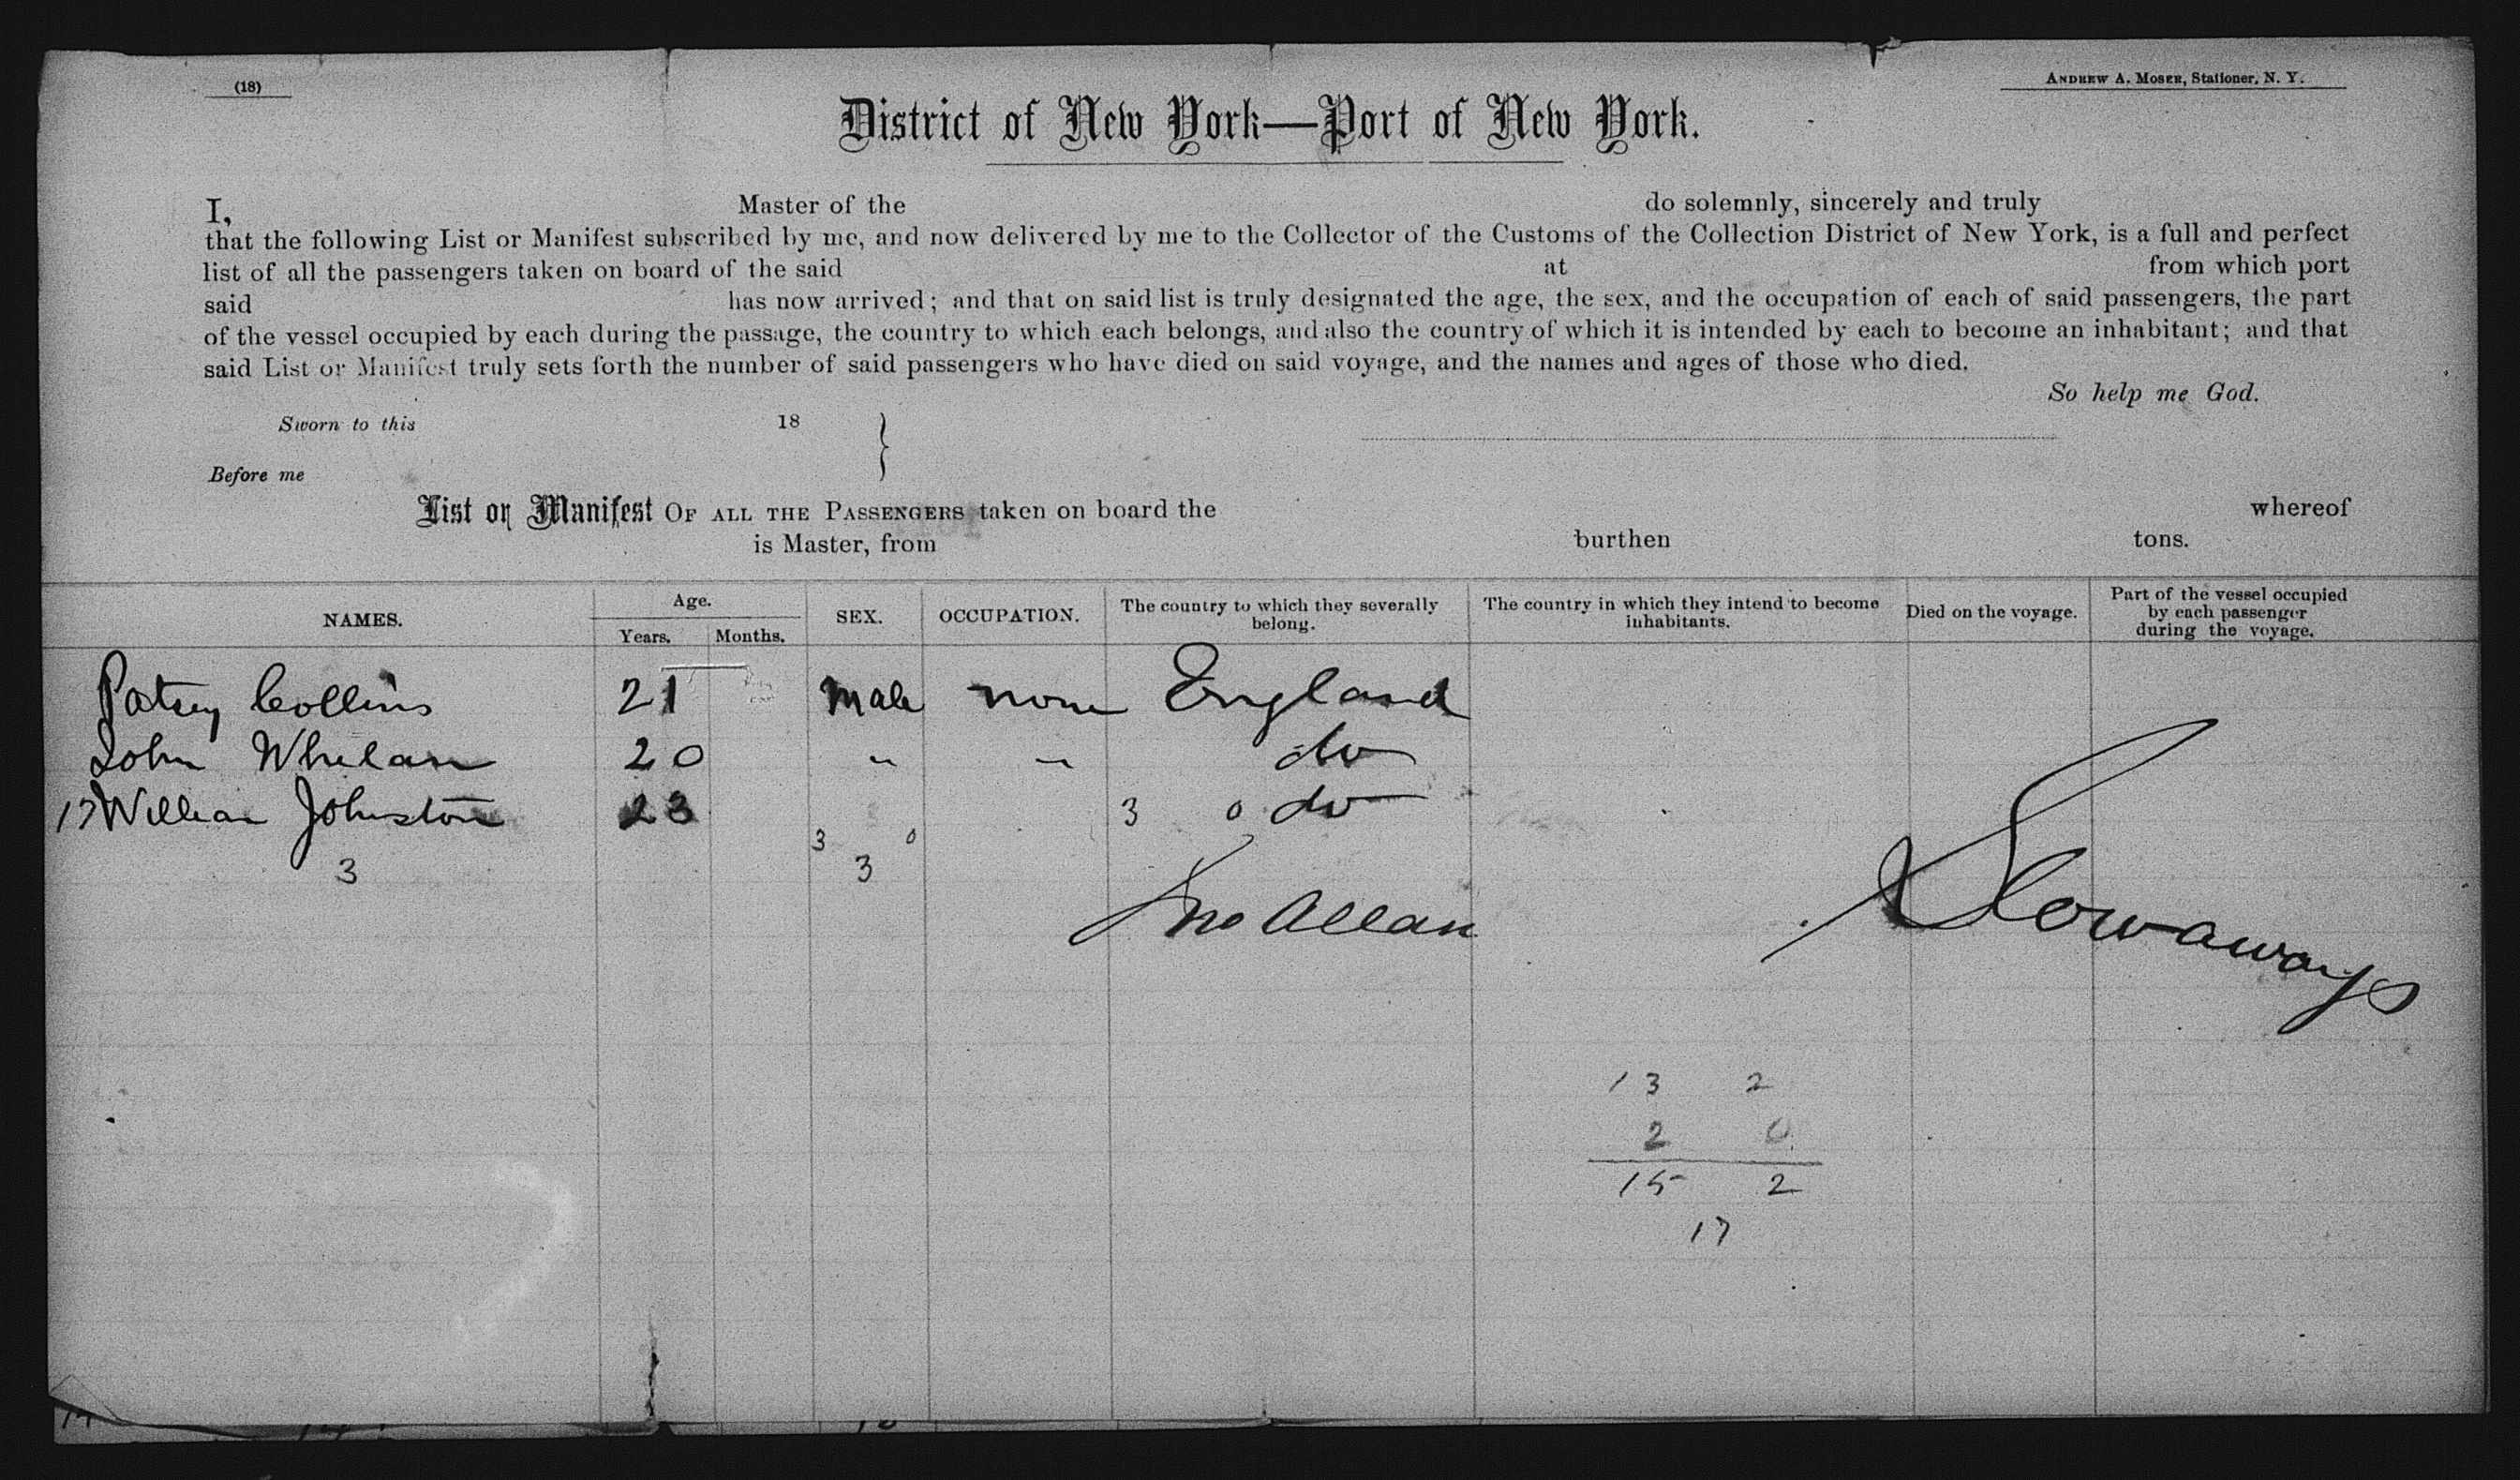 (18)
Andrew A. Moser, Stationer, N. Y.
District of New York—Port of New York.
I, Master of the do solemnly, sincerely and truly
that the following List or Manifest subscribed by me, and now delivered by me to the Collector of the Customs of the Collection District of New York, is a full and perfect
list of all the passengers taken on board of the said at from which port
said has now arrived; and that on said list is truly designated the age, the sex, and the occupation of each of said passengers, the part
of the vessel occupied by each during the passage, the country to which each belongs, and also the country of which it is intended by each to become an inhabitant; and that
said List or Manifest truly sets forth the number of said passengers who have died on said voyage, and the names and ages of those who died.
So help me God.
Sworn to this 18 }
Before me
List or Manifest OF ALL THE PASSENGERS taken on board the whereof
is Master, from burthen tons.
NAMES. Age. Years. Months. SEX. OCCUPATION. The country to which they severally belong. The country in which they intend to become inhabitants. Died on the voyage. Part of the vessel occupied by each passenger during the voyage.
Patsey Collins 21 Male none England
John Whelan 20 " " do
17 William Johnston 23 3 0 do
3 0
3 3
Jno Allan
Stowaways
13 2
2 0
15 2
17